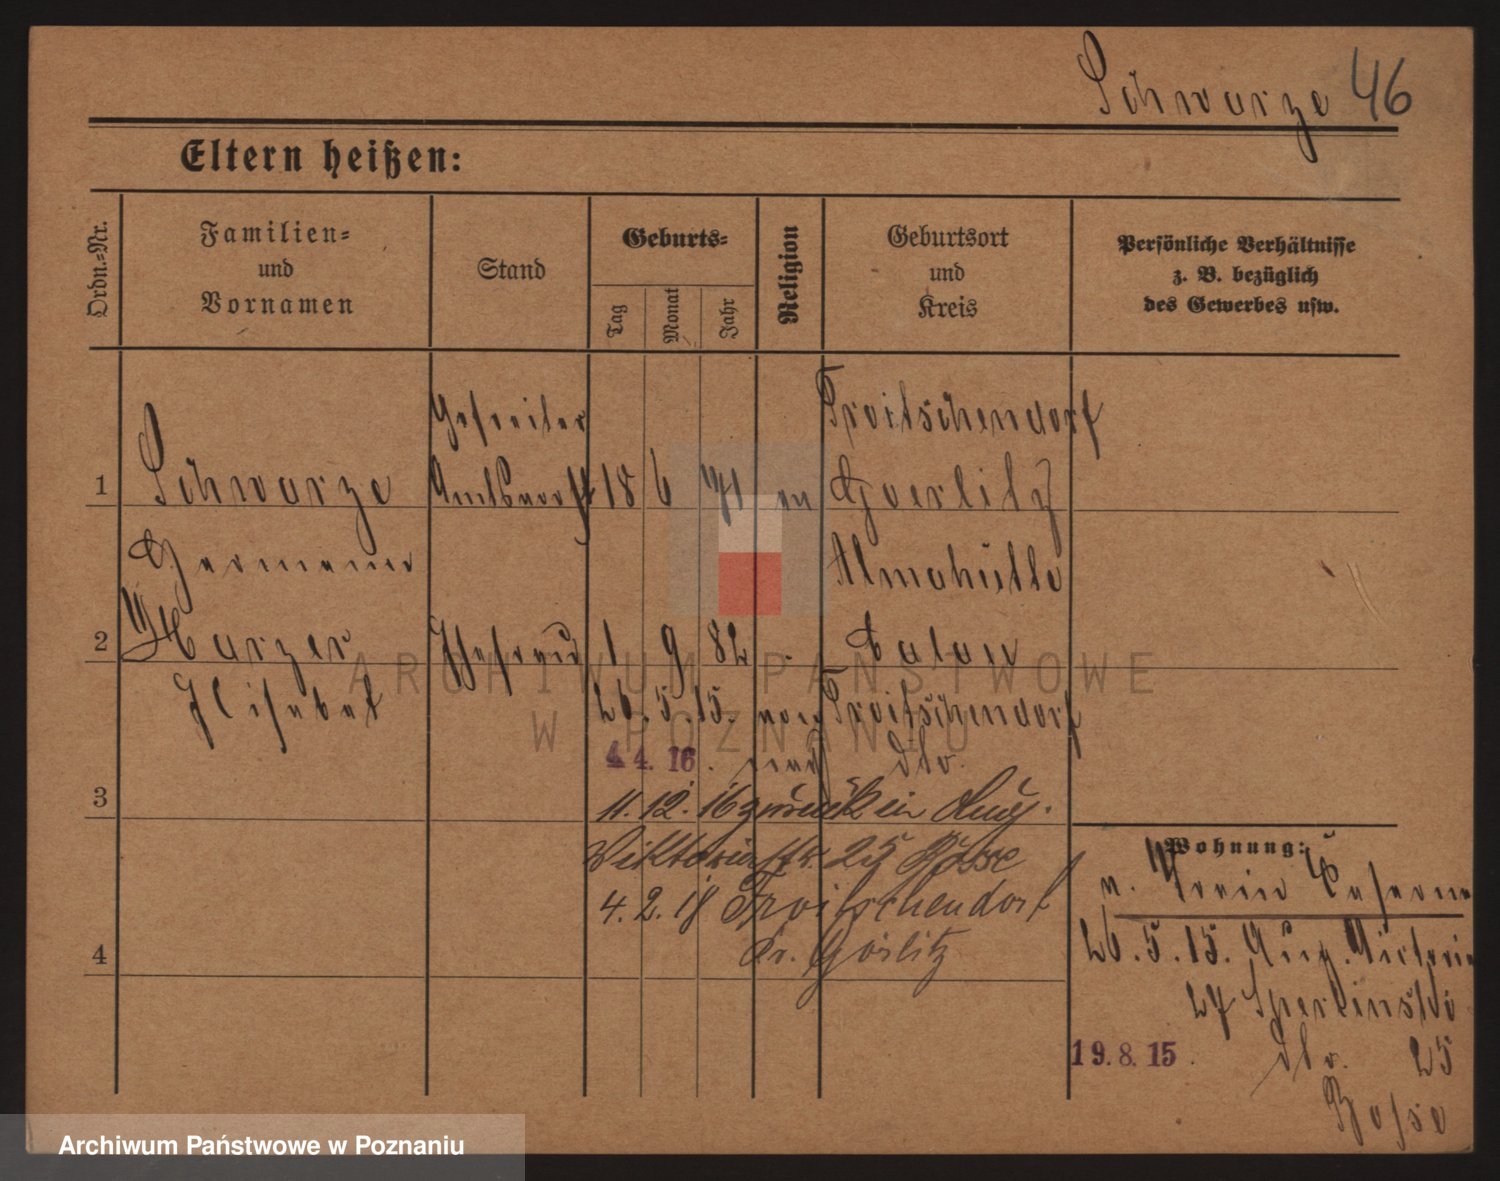 Schwarze 46
Eltern heißen:
Ordn.-Nr.
Familien-
und
Vornamen
Stand
Geburts-
Tag
Monat
Jahr
Religion
Geburtsort
und
Kreis
Persönliche Verhältnisse
z. B. bezüglich
des Gewerbes usw.
Gefreiter
Troitschendorf
1 Schwarze 18 6 Goerlitz
Hermann Almahütte
2 Harzer Ehefrau 1 9 82 Calau
Elisabet 26. 5. 15. Troitschendorf
4 4. 16. dto.
3 11. 12. 16 zurück ein Aug.
Viktoriastr. 25 Bosse
4. 2. 18 Troitschendorf
4 Kr. Görlitz
Wohnung:
26. 5. 15. Aug. Victoria
27 Sperlinski
19.8.15. dto. 25
Bosse
ARCHIWUM PAŃSTWOWE
W POZNANIU
Archiwum Państwowe w Poznaniu